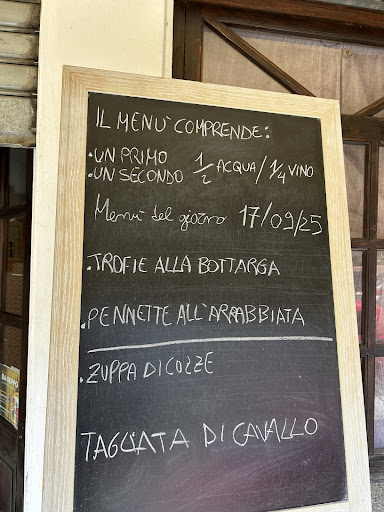 IL MENÙ COMPRENDE:
.UN PRIMO
.UN SECONDO 1/2 ACQUA / 1/4 VINO
Menù del giorno 17/09/25
.TROFIE ALLA BOTTARGA
.PENNETTE ALL'ARRABBIATA
.ZUPPA DI COZZE
TAGLIATA DI CAVALLO